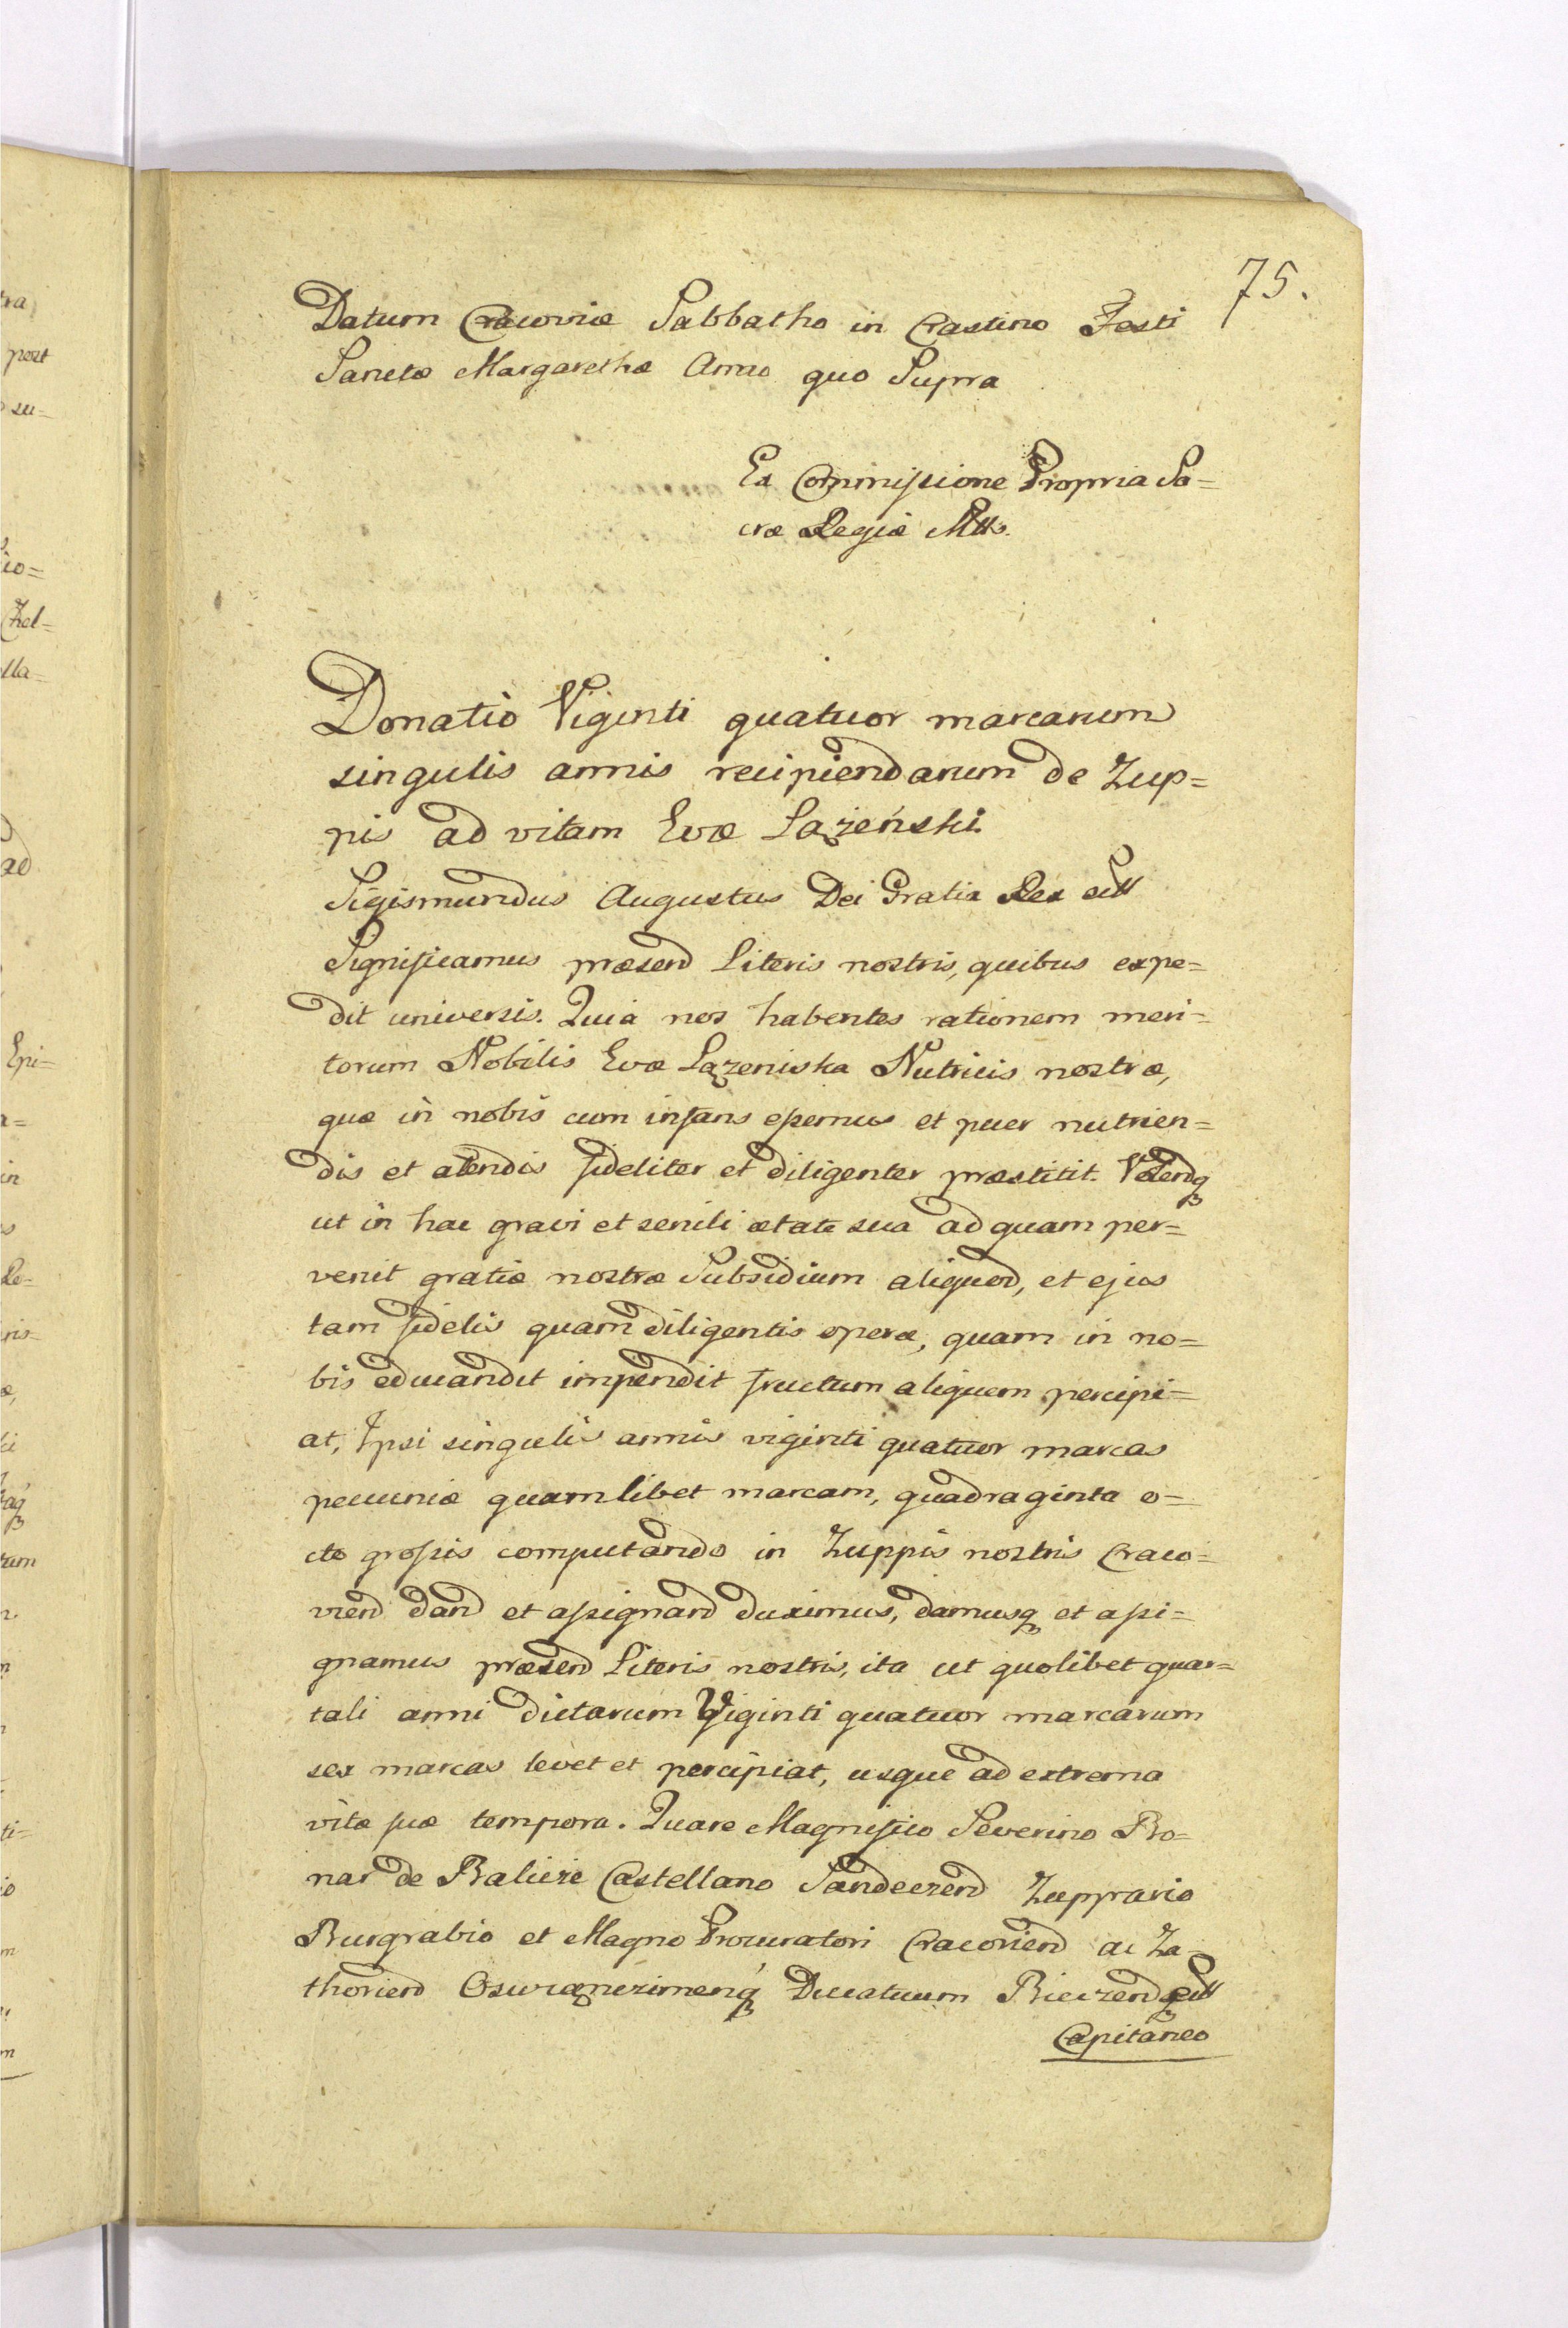 75.
Datum Cracoviæ Sabbatho in Crastino Festi
Sanctæ Margarethæ Anno quo Supra
Ex Commissione Propria Sa=
cræ Regiæ Mtts.
Donatio Viginti quatuor marcarum
singulis annis recipiendarum de Zup=
pis ad vitam Evæ Łązeński.
Sigismundus Augustus Dei Gratia Rex ett
Significamus præsend Literis nostris, quibus expe=
dit universis. Quia nos habentes rationem meri=
torum Nobilis Evæ Łązeniska Nutricis nostræ,
quæ in nobis cum infans essemus et puer nutrien=
dis et alendis fideliter et diligenter præstitit. Volendq
ut in hac gravi et senili ætate sua ad quam per=
venit gratiæ nostræ Subsidium aliquod, et ejus
tam fidelis quam diligentis operæ, quam in no=
bis educandit impendit fructum aliquem percipi=
at, Ipsi singulis annis viginti quatuor marcas
pecuniæ quamlibet marcam, quadraginta o=
cto grossis computando in Zuppis nostris Craco=
viend dand et assignand duximus, damusq et assi=
gnamus præsend Literis nostris, ita ut quolibet quar=
tali anni dictarum Viginti quatuor marcarum
sex marcas levet et percipiat, usque ad extrema
vitæ suæ tempora. Quare Magnifico Severino Bo=
nar de Balicze Castellano Sandeczend Zuppario
Burgrabio et Magno Procuratori Cracoviend ac Za=
thoriend Oswięnczimenq Ducatuum Bieczendq ett
Capitaneo
tra,
post
su=
io=
Czel=
lla=
ad
Epi=
in
Re=
ris=
rum
ti=
io